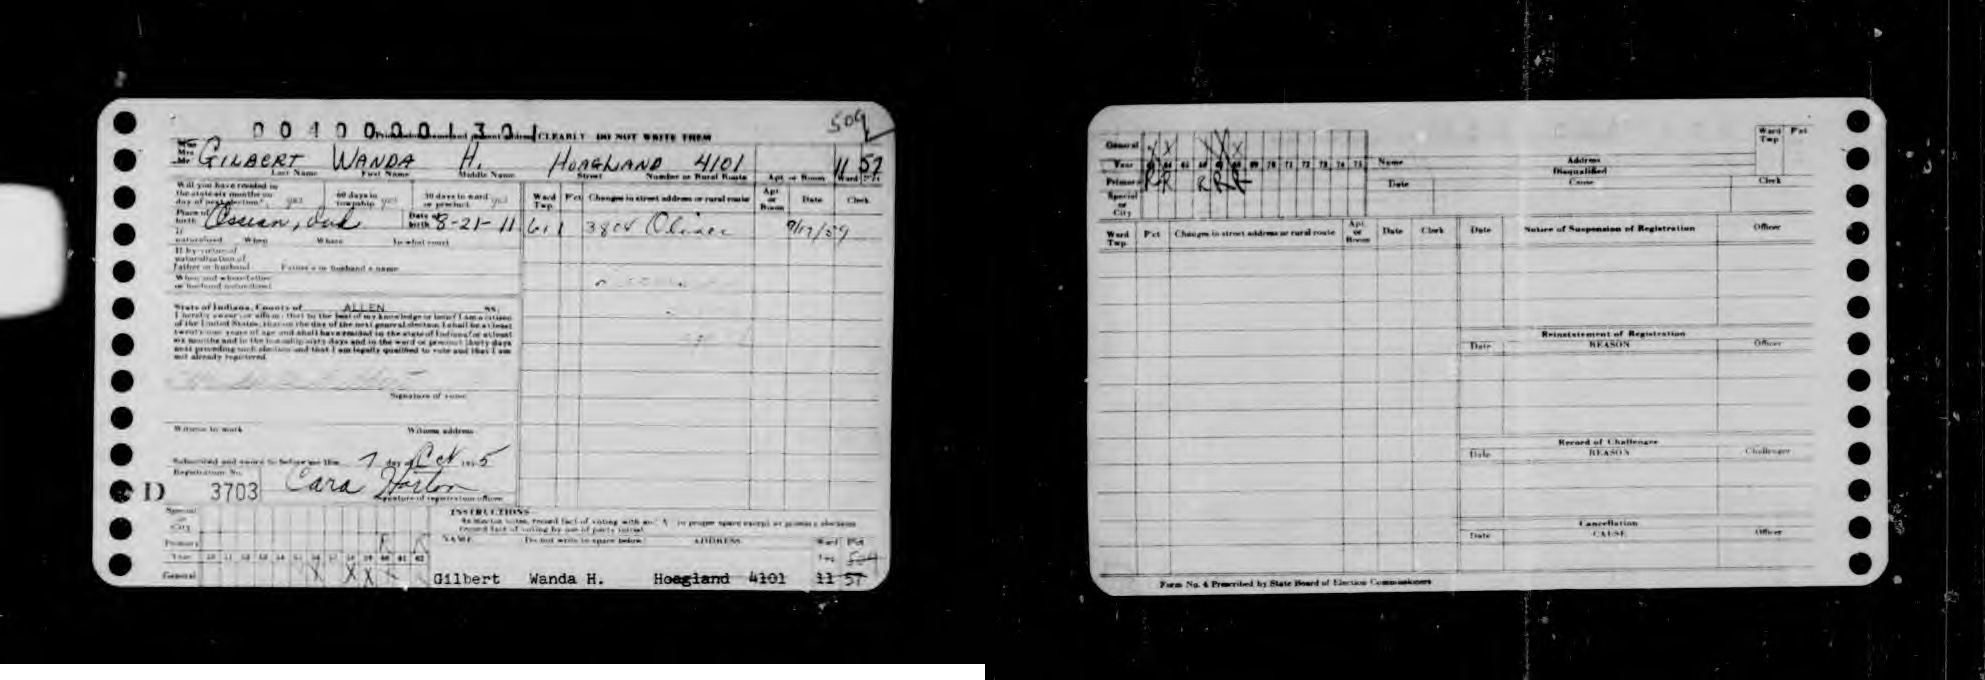 0 0 4 0 0 0 0 1 3 0 1 CLEARLY DO NOT WRITE THEM
509
Mrs GILBERT WANDA H. HOAGLAND 4101 11 57
Last Name First Name Middle Name Street Number or Rural Route Apt. or Room Ward Pct
Will you have resided in the state six months on day of next election? yes 60 days in township yes 30 days in ward or precinct yes
Ward Twp. Pct Changes in street address or rural route Apt. or Room Date Clerk
Place of birth Ossian, Ind Date of birth 8-21-11
611 3804 Oliver 9/17/59
If naturalized When Where In what court
If by virtue of naturalization of Father or husband Father's or husband's name
When and where father or husband naturalized
State of Indiana, County of ALLEN SS:
I hereby swear or affirm that to the best of my knowledge or belief I am a citizen
of the United States; that on the day of the next general election I shall be at least
twenty-one years of age and shall have resided in the state of Indiana for at least
six months and in the township sixty days and in the ward or precinct thirty days
next preceding such election and that I am legally qualified to vote and that I am
not already registered.
Signature of voter
Witness to mark Witness address
Subscribed and sworn to before me this 7 day of Oct 1955
Registration No.
D 3703 Cara Horton
Signature of registration officer
INSTRUCTIONS
At election votes, record fact of voting with an X in proper space except at primary elections
record fact of voting by use of party initial
Special or City
Primary R R
Year 50 51 52 53 54 55 56 57 58 59 60 61 62
General X X X
NAME Do not write in space below ADDRESS Ward Pct
Twp 504
Gilbert Wanda H. Hoagland 4101 11 57
General X X X X
Year 63 64 65 66 67 68 69 70 71 72 73 74 75
Primary R R R R R
Special or City
Name Address Ward Twp Pct
Disqualified
Date Cause Clerk
Ward Twp. Pct Changes in street address or rural route Apt. or Room Date Clerk
Date Notice of Suspension of Registration Officer
Reinstatement of Registration
Date REASON Officer
Record of Challenges
Date REASON Challenger
Cancellation
Date CAUSE Officer
Form No. 4 Prescribed by State Board of Election Commissioners